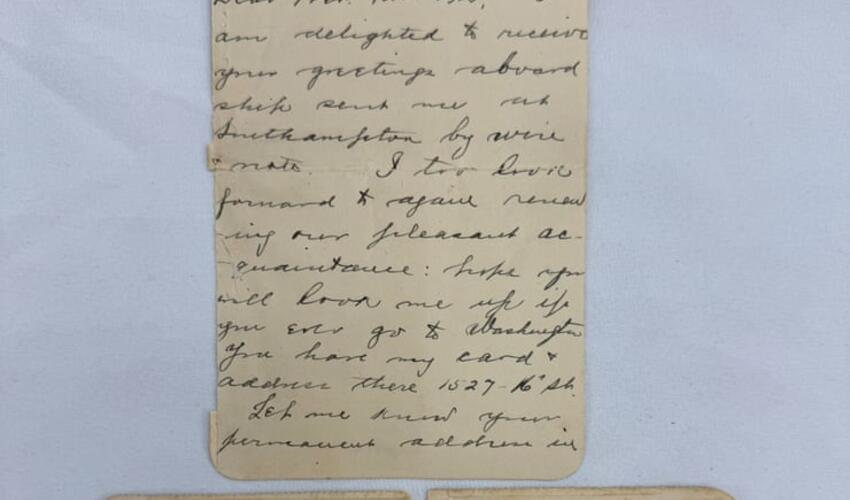 am delighted to receive
your greetings aboard
ship sent me at
Southampton by wire
note. I too look
forward to again renew
-ing our pleasant ac-
quaintance: hope you
will look me up if
you ever go to Washington
You have my card &
address there 1527-16" St.
Let me know your
permanent address in